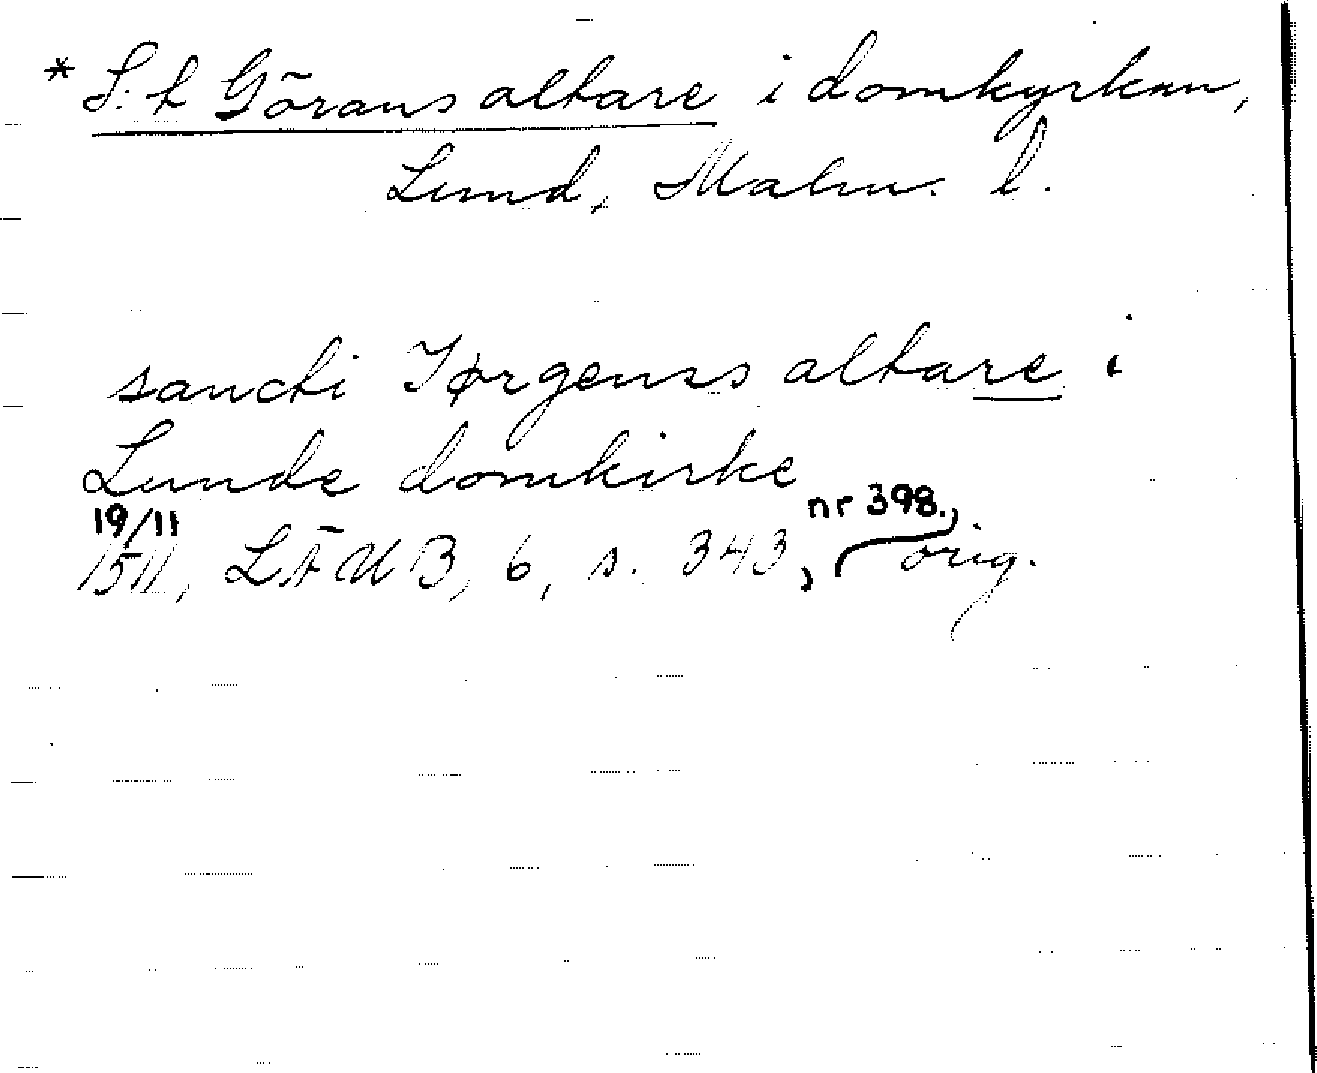 * S:t Görans altare i domkyrkan,
Lund, Malm. l.
sancti Jørgenss altare i
Lunde domkirke
19/11 nr 398.,
1511, LÄUB, 6, s. 343, orig.